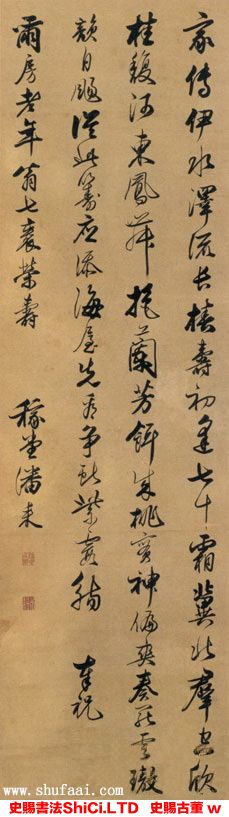 家傳伊水澤流長椿壽初逢七十霜冀北羣空欣
桂馥河東鳳挹蘭芳餌桃實神偏爽奏罷雲璈
韻自颺從此籌應添海屋先看爭獻紫霞觴 奉祝
雨房老年翁七袠榮壽 稼堂潘耒
http://www.shufaai.com/
史賜書法ShiCi.LTD 史賜古董 w